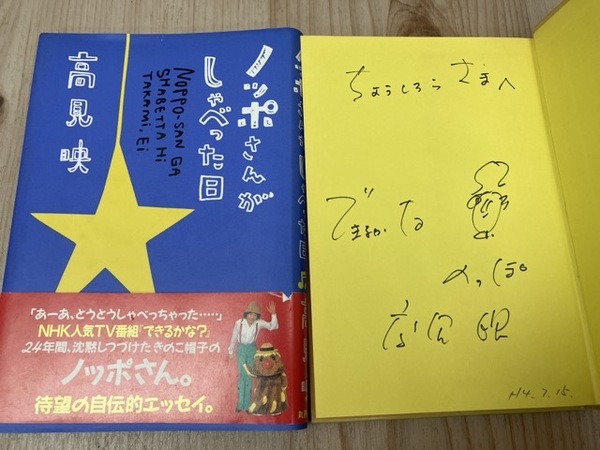 ノッポさんが
しゃべった日
NOPPO-SAN GA
SHABETTA HI
TAKAMI, EI
高見映
「あーあ、とうとうしゃべっちゃった……」
NHK人気TV番組「できるかな?」
24年間、沈黙しつづけたきのこ帽子の
ノッポさん。
待望の自伝的エッセイ。
さまへ
できるかな
のっぽ
高見映
H4.7.15.